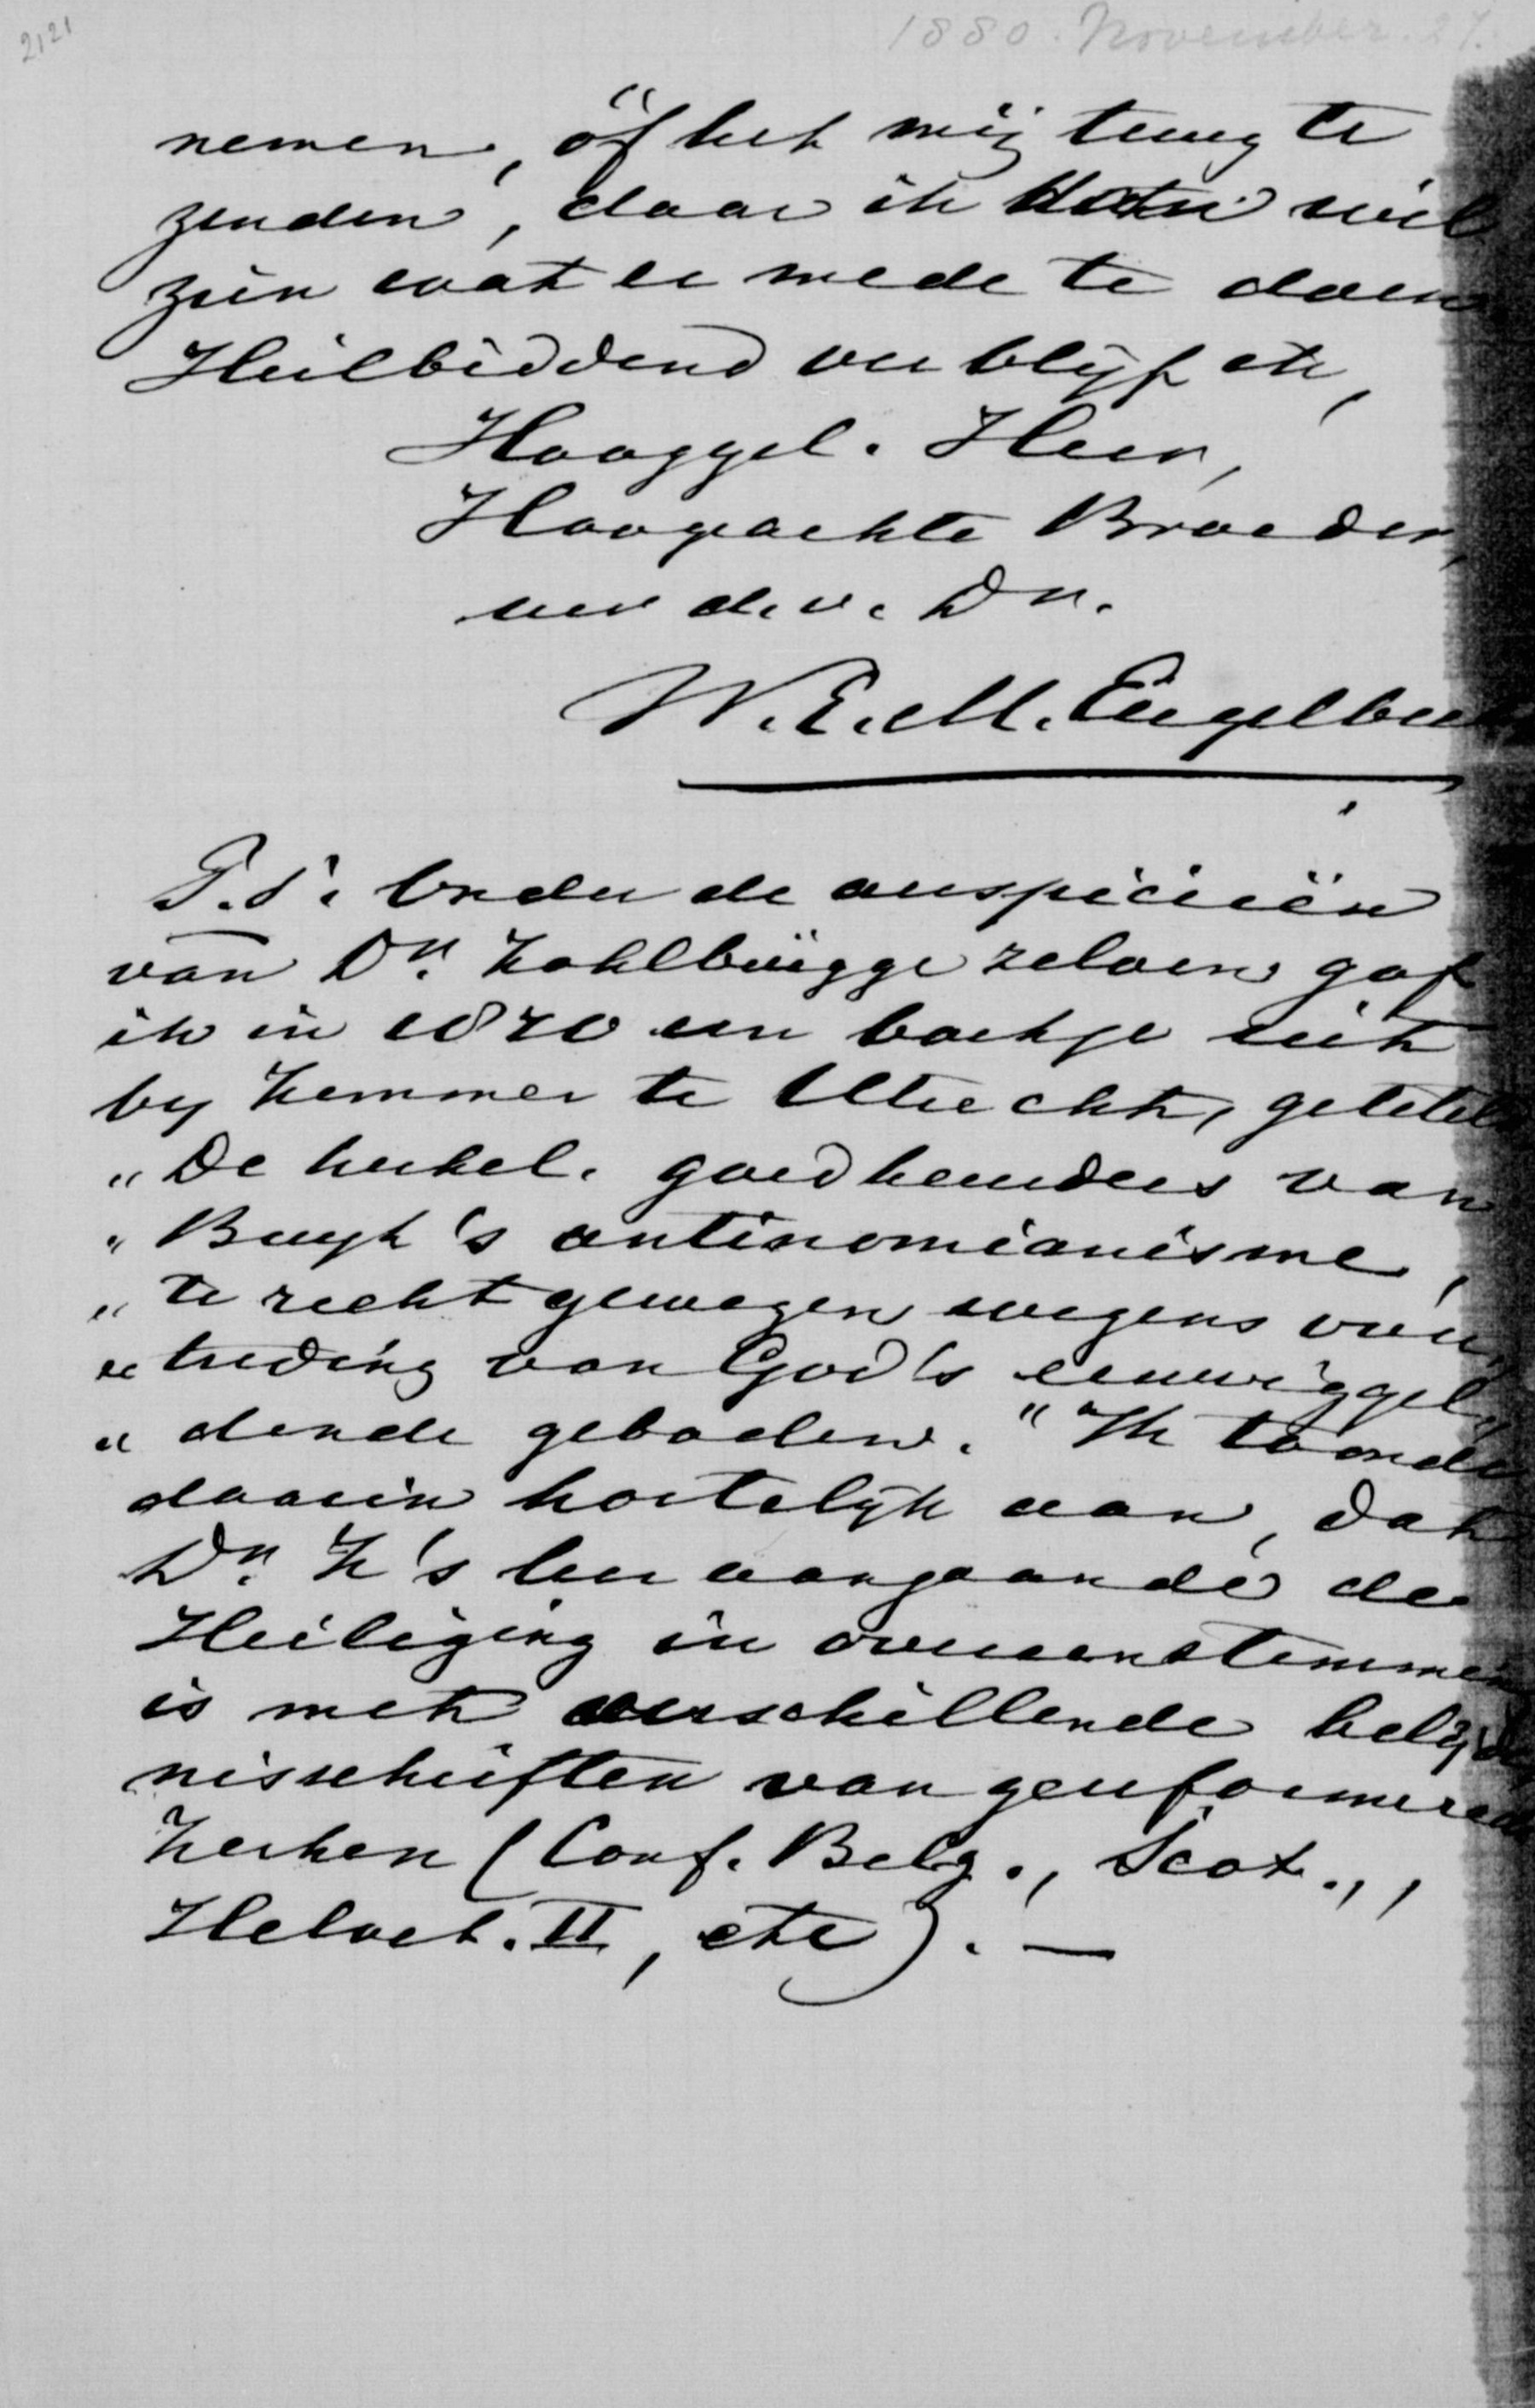 2121
1880. November. 27.
nemen, óf het mij terug te
zenden, daar ik dan wil
zien wat er mede te doen
Heilbiddend verblijf ik,
Hooggel. Heer,
Hoogeachte Broeder,
uw d.v. Dr.
W.E.M. Engelber
P.S. Onder de auspiciën
van Dr. Kohlbrügge zelven gaf
ik in 1870 een boekje uit
by Kemmer te Utrecht, getiteld
"De herkel. goedkeuders van
"Bugh's antinomianisme,
"te recht gewezen wegens over,
"treding van God's eeuwiggel,,
"dende geboden." Ik toonde
daarin kortelijk aan, dat
Dr. K's leer aangaande de
Heiliging in overeenstemming
is met verschillende belijde
nisschriften van gereformeerde
Kerken (Conf. Belg., Scot.,,
Helvet. II, etc). —